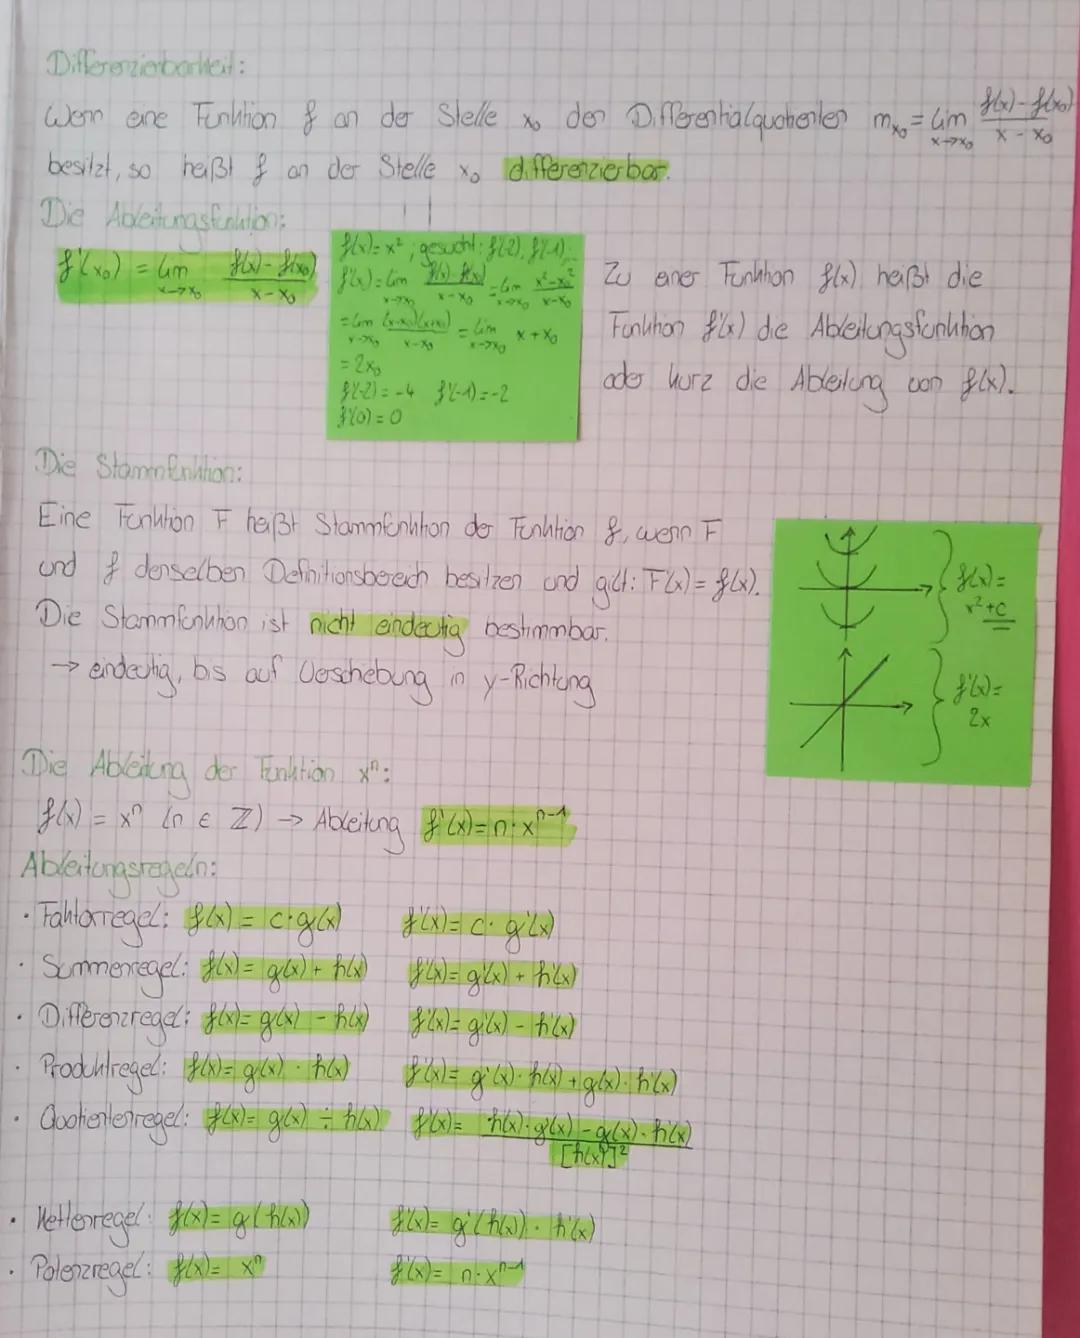 Differenzierbarkeit:
Wenn eine Funktion f an der Stelle x₀ den Differentialquotienten m_x₀ = lim x→x₀ (f(x) - f(x₀)) / (x - x₀)
besitzt, so heißt f an der Stelle x₀ differenzierbar.
Die Ableitungsfunktion:
f'(x₀) = lim x→x₀ (f(x) - f(x₀)) / (x - x₀)
f(x) = x², gesucht: f'(-2), f'(-1),
f'(x) = lim x→x₀ (f(x) - f(x₀)) / (x - x₀) = lim x→x₀ (x² - x₀²) / (x - x₀)
= lim x→x₀ (x-x₀)(x+x₀) / (x - x₀) = lim x→x₀ x + x₀
= 2x₀
f'(-2) = -4 f'(-1) = -2
f'(0) = 0
Zu einer Funktion f(x) heißt die
Funktion f'(x) die Ableitungsfunktion
oder kurz die Ableitung von f(x).
Die Stammfunktion:
Eine Funktion F heißt Stammfunktion der Funktion f, wenn F
und f denselben Definitionsbereich besitzen und gilt: F'(x) = f(x).
Die Stammfunktion ist nicht eindeutig bestimmbar.
→ eindeutig, bis auf Verschiebung in y-Richtung
f(x) =
x² + c
f'(x) =
2x
Die Ableitung der Funktion xⁿ:
f(x) = xⁿ (n ∈ ℤ) → Ableitung f'(x) = n · xⁿ⁻¹
Ableitungsregeln:
· Faktorregel: f(x) = c · g(x) f'(x) = c · g'(x)
· Summenregel: f(x) = g(x) + h(x) f'(x) = g'(x) + h'(x)
· Differenzregel: f(x) = g(x) - h(x) f'(x) = g'(x) - h'(x)
· Produktregel: f(x) = g(x) · h(x) f'(x) = g'(x) · h(x) + g(x) · h'(x)
· Quotientenregel: f(x) = g(x) ÷ h(x) f'(x) = (h(x) · g'(x) - g(x) · h'(x)) / [h(x)]²
· Kettenregel: f(x) = g(h(x)) f'(x) = g'(h(x)) · h'(x)
· Potenzregel: f(x) = xⁿ f'(x) = n · xⁿ⁻¹